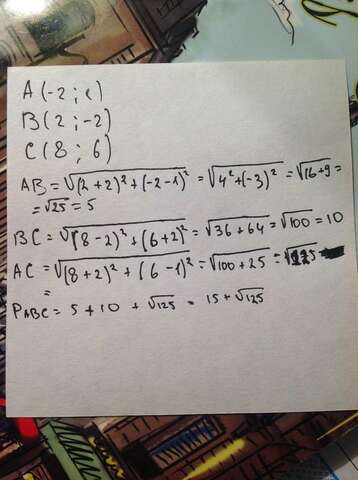 A (-2 ; 1)
B (2 ; -2)
C (8 ; 6)
AB = √((2+2)² + (-2-1)²) = √(4² + (-3)²) = √(16+9) =
= √25 = 5
BC = √((8-2)² + (6+2)²) = √(36+64) = √100 = 10
AC = √((8+2)² + (6-1)²) = √(100+25) = √125
=
P_ABC = 5 + 10 + √125 = 15 + √125